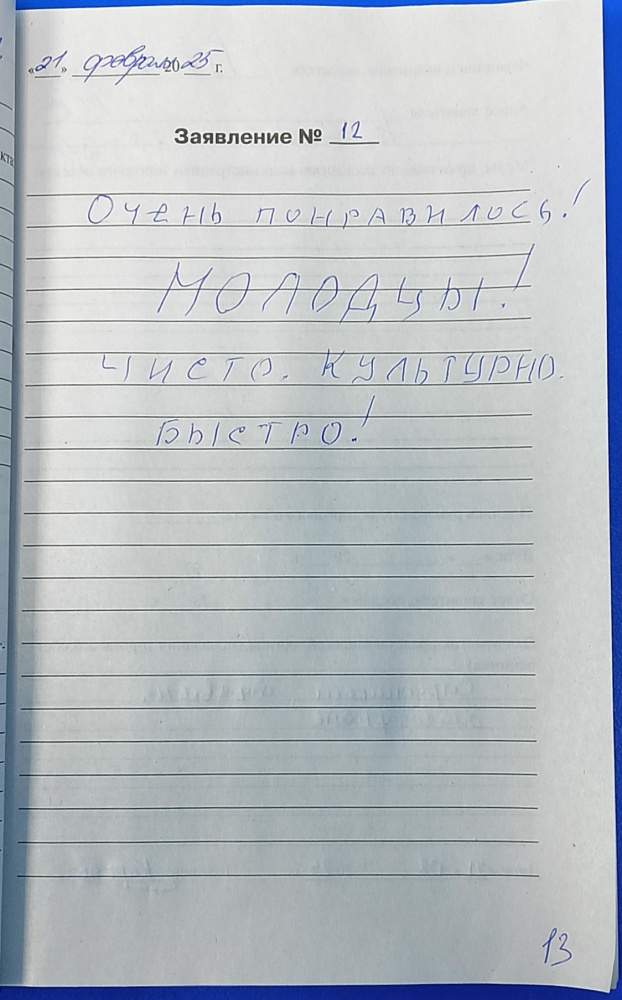 «21» февраль 2025 г.
Заявление № 12
Очень понравилось!
Молодцы!
Чисто. Культурно.
Быстро!
13